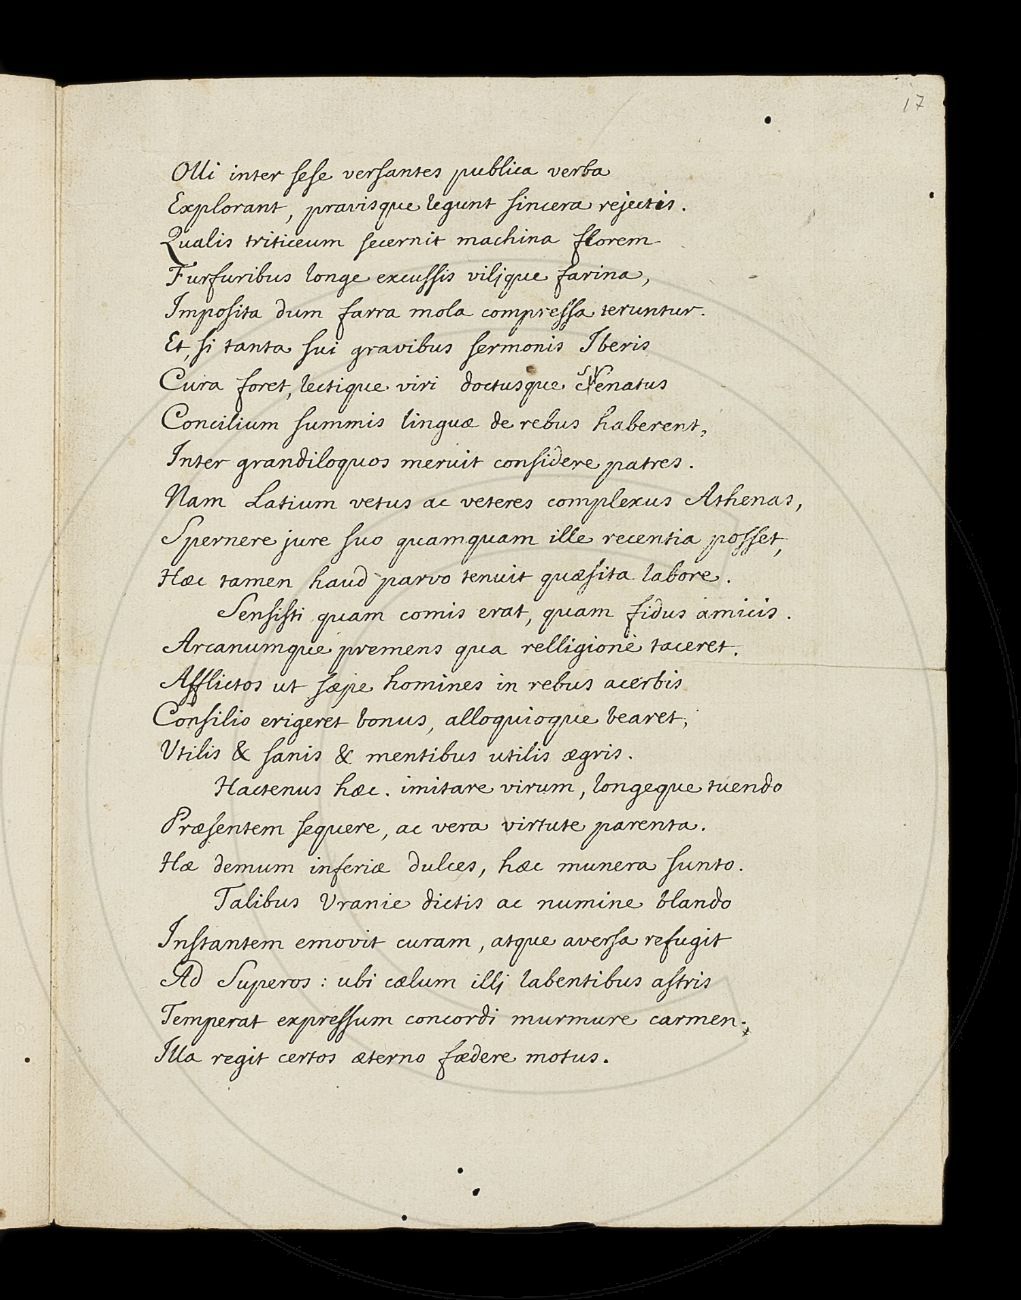 17
Olli inter sese versantes publica verba
Explorant, pravisque legunt sincera rejectis.
Qualis triticeum secernit machina florem
Furfuribus longe excussis vilique farina,
Imposita dum farra mola compressa teruntur.
Et, si tanta sui gravibus sermonis Iberis
Cura foret, lectique viri doctusque Senatus
Concilium summis linguæ de rebus haberent,
Inter grandiloquos meruit considere patres.
Nam Latium vetus ac veteres complexus Athenas,
Spernere jure suo quamquam ille recentia posset,
Hæc tamen haud parvo tenuit quæsita labore.
Sensisti quam comis erat, quam fidus amicis.
Arcanumque premens qua relligione taceret.
Afflictos ut sæpe homines in rebus acerbis
Consilio erigeret bonus, alloquioque bearet,
Utilis & sanis & mentibus utilis ægris.
Hactenus hæc. imitare virum, longeque tuendo
Præsentem sequere, ac vera virtute parenta.
Hæ demum inferiæ dulces, hæc munera sunto.
Talibus Uranie dictis ac numine blando
Instantem emovit curam, atque aversa refugit
Ad Superos: ubi cælum illi labentibus astris
Temperat expressum concordi murmure carmen.
Illa regit certos æterno fædere motus.